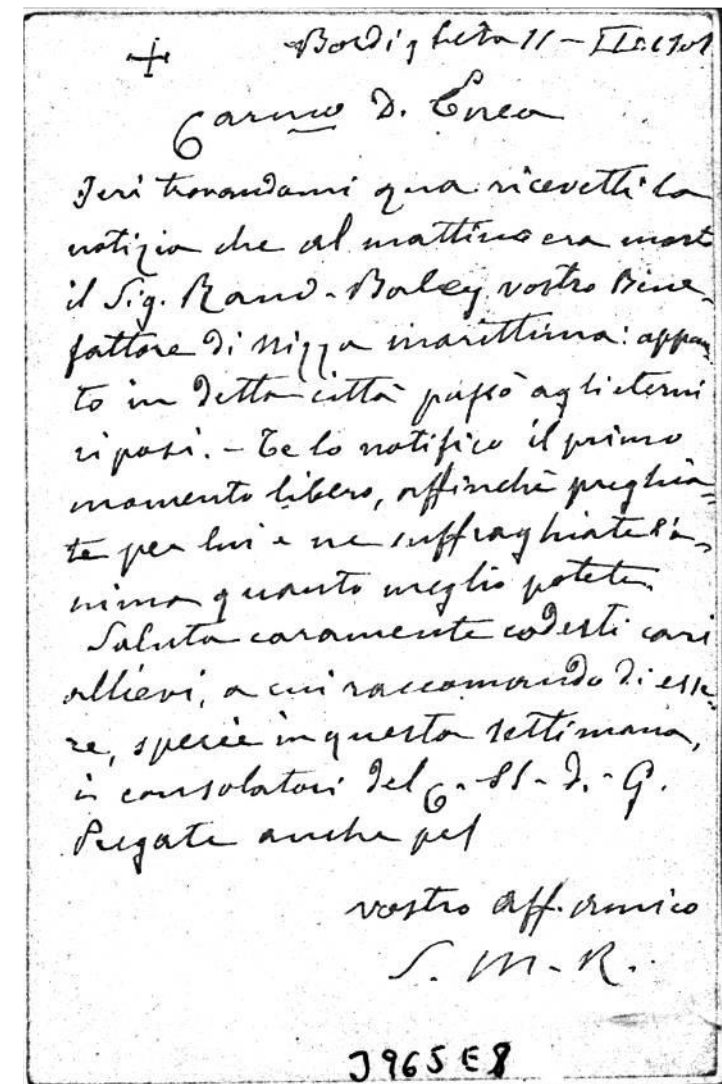 + Bordighera 11-II-1901
Carmo D. Enea
Jeri trovandomi qua ricevetti la
notizia che al mattino era morto
il Sig. Rand-Baley vostro Bene-
fattore di Nizza marittima: appun
to in detta città passò agli eterni
riposi. - Te lo notifico il primo
momento libero, affinchè preghia-
te per lui e ne suffraghiate l'a-
nima quanto meglio potete.
Saluta caramente codesti cari
allievi, a cui raccomando di esse-
re, specie in questa settimana,
i consolatori del C. SS. d. G.
Pregate anche pel
vostro aff. amico
S. M. R.
J965E8